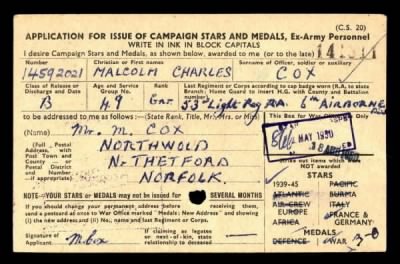 (C.S. 20)
APPLICATION FOR ISSUE OF CAMPAIGN STARS AND MEDALS, Ex-Army Personnel
WRITE IN INK IN BLOCK CAPITALS
I desire Campaign Stars and Medals, as shown below, awarded to me (or to the late)
Number Christian or First Names Surname of Officer, soldier or auxiliary
14592021 MALCOLM CHARLES COX
Class of Release or Discharge and Date Age and Service Group No. Rank Last Regiment or Corps according to cap badge worn (R.A. to state Branch; Home Guard to insert H.G. with County and Battalion)
B 49 Gnr. 53rd Light Reg RA. 6th AIRBORNE
to be addressed to me as follows:— (State Rank, Title, Mr., Mrs. or Miss)
(Name) Mr. M. COX
(Full Postal Address, with Post Town and County or Postal District and Number if necessary)
NORTHWOLD
Nr THETFORD
NORFOLK
This Box for War Office Use Only
MAY 1950
Strike out items which were NOT awarded
STARS
1939-45 PACIFIC
ATLANTIC BURMA
AIR CREW ITALY
EUROPE FRANCE &
AFRICA GERMANY
MEDALS
DEFENCE WAR
NOTE—YOUR STARS or MEDALS may not be issued for SEVERAL MONTHS
If you should change your permanent address before receiving them, send a postcard at once to War Office marked "Medals: New Address" and showing (i) the old address; (ii) the new address; (iii) No., name and last Regiment or Corps.
Signature of Applicant M. Cox
If claiming as legatee or next-of-kin, state relationship to deceased